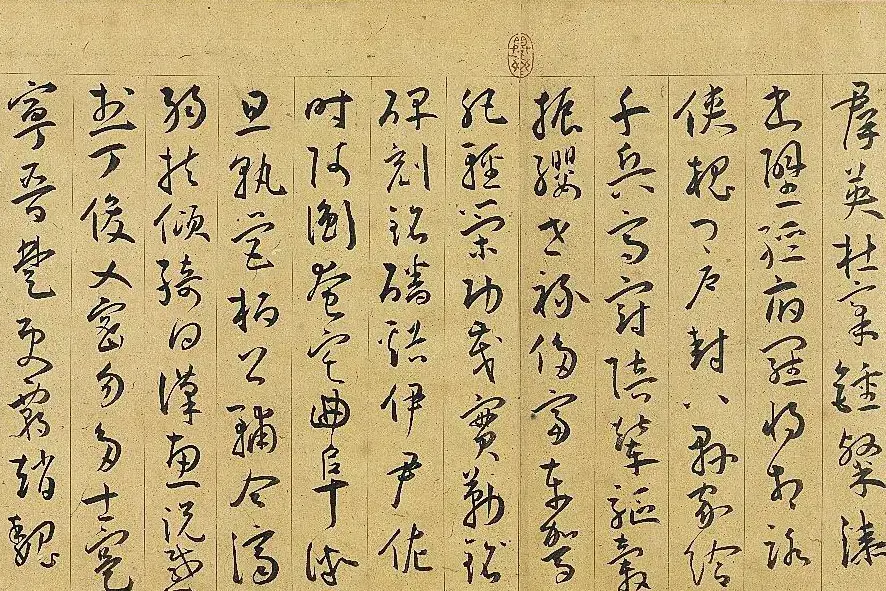 群英杜稾鍾隸漆
書壁經府羅將相路
俠槐卿戶封八縣家給
千兵高冠陪輦驅轂
振纓世祿侈富車駕
肥輕策功茂實勒銘
碑刻銘磻溪伊尹佐
時阿衡奄宅曲阜微
旦孰營桓公輔合濟
弱扶傾綺回漢惠說感
武丁俊乂密勿多士寔
寧晉楚更霸趙魏